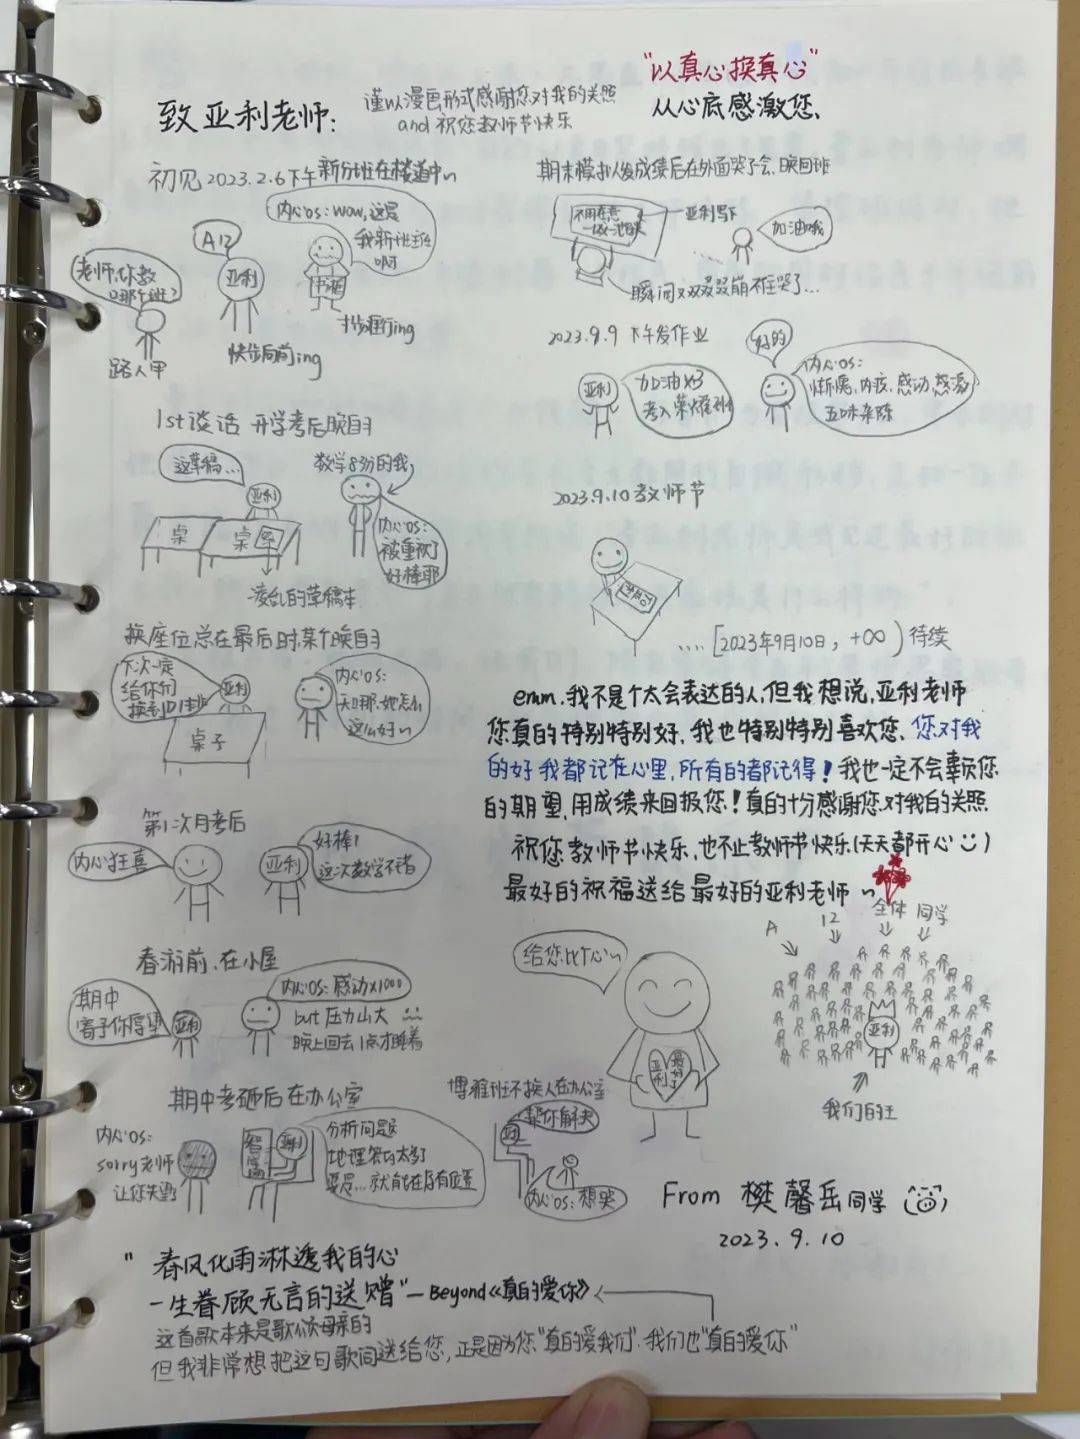 "以真心换真心"
从心底感激您、
致亚利老师:
谨以漫色形式感谢您对我的关照
and 祝您教师节快乐
初见 2023.2.6下午新分班在楼道中~
老师,你教
哪个班?
路人甲
A12
亚利
快步向前ing
内心OS: wow,这是
我新班班
啊
1st谈话 开学考后晚自习
这草稿...
亚利
桌
桌
凌乱的草稿本
数学83分的我
内心OS:
被重视了
好棒耶
换座位总在最后时,某个晚自习
下次一定
给你们
换到第1排
亚利
桌子
内心OS:
天哪,她怎么
这么好~
第1次月考后
内心狂喜
亚利
好棒!
这次数学不错
春游前,在小屋
期中
寄予你厚望
亚利
内心OS:感动x1000
but 压力山大
晚上回去1点才睡着
期中考砸后在办公室
内心OS:
sorry老师
让您失望
亚利
分析问题
博雅班不换人在办公室
帮你解决
内心OS:想哭
期末模拟发成绩后在外面哭了会,晚回班
亚利写下
加油哦
瞬间又双叒叕崩不住哭了...
2023.9.9 下午发作业
亚利
加油x3
考入荣耀班
好的
内心OS:
惭愧、内疚、感动、感激
五味杂陈
2023.9.10 教师节
....[2023年9月10日, +∞) 待续
emm.我不是个太会表达的人,但我想说,亚利老师
您真的特别特别好,我也特别特别喜欢您,您对我
的好我都记在心里,所有的都记得!我也一定不会辜负您
的期望,用成绩来回报您!真的十分感谢您对我的关照.
祝您教师节快乐,也不止教师节快乐(天天都开心)
最好的祝福送给最好的亚利老师~
给您比个心~
亚利
最好了
A 12 全体 同学
亚利
我们的王
From 樊馨岳同学
2023.9.10
"春风化雨淋透我的心
一生眷顾无言的送赠"—Beyond《真的爱你》
这首歌本来是歌颂母亲的
但我非常想把这句歌词送给您,正是因为您"真的爱我们",我们也"真的爱你"